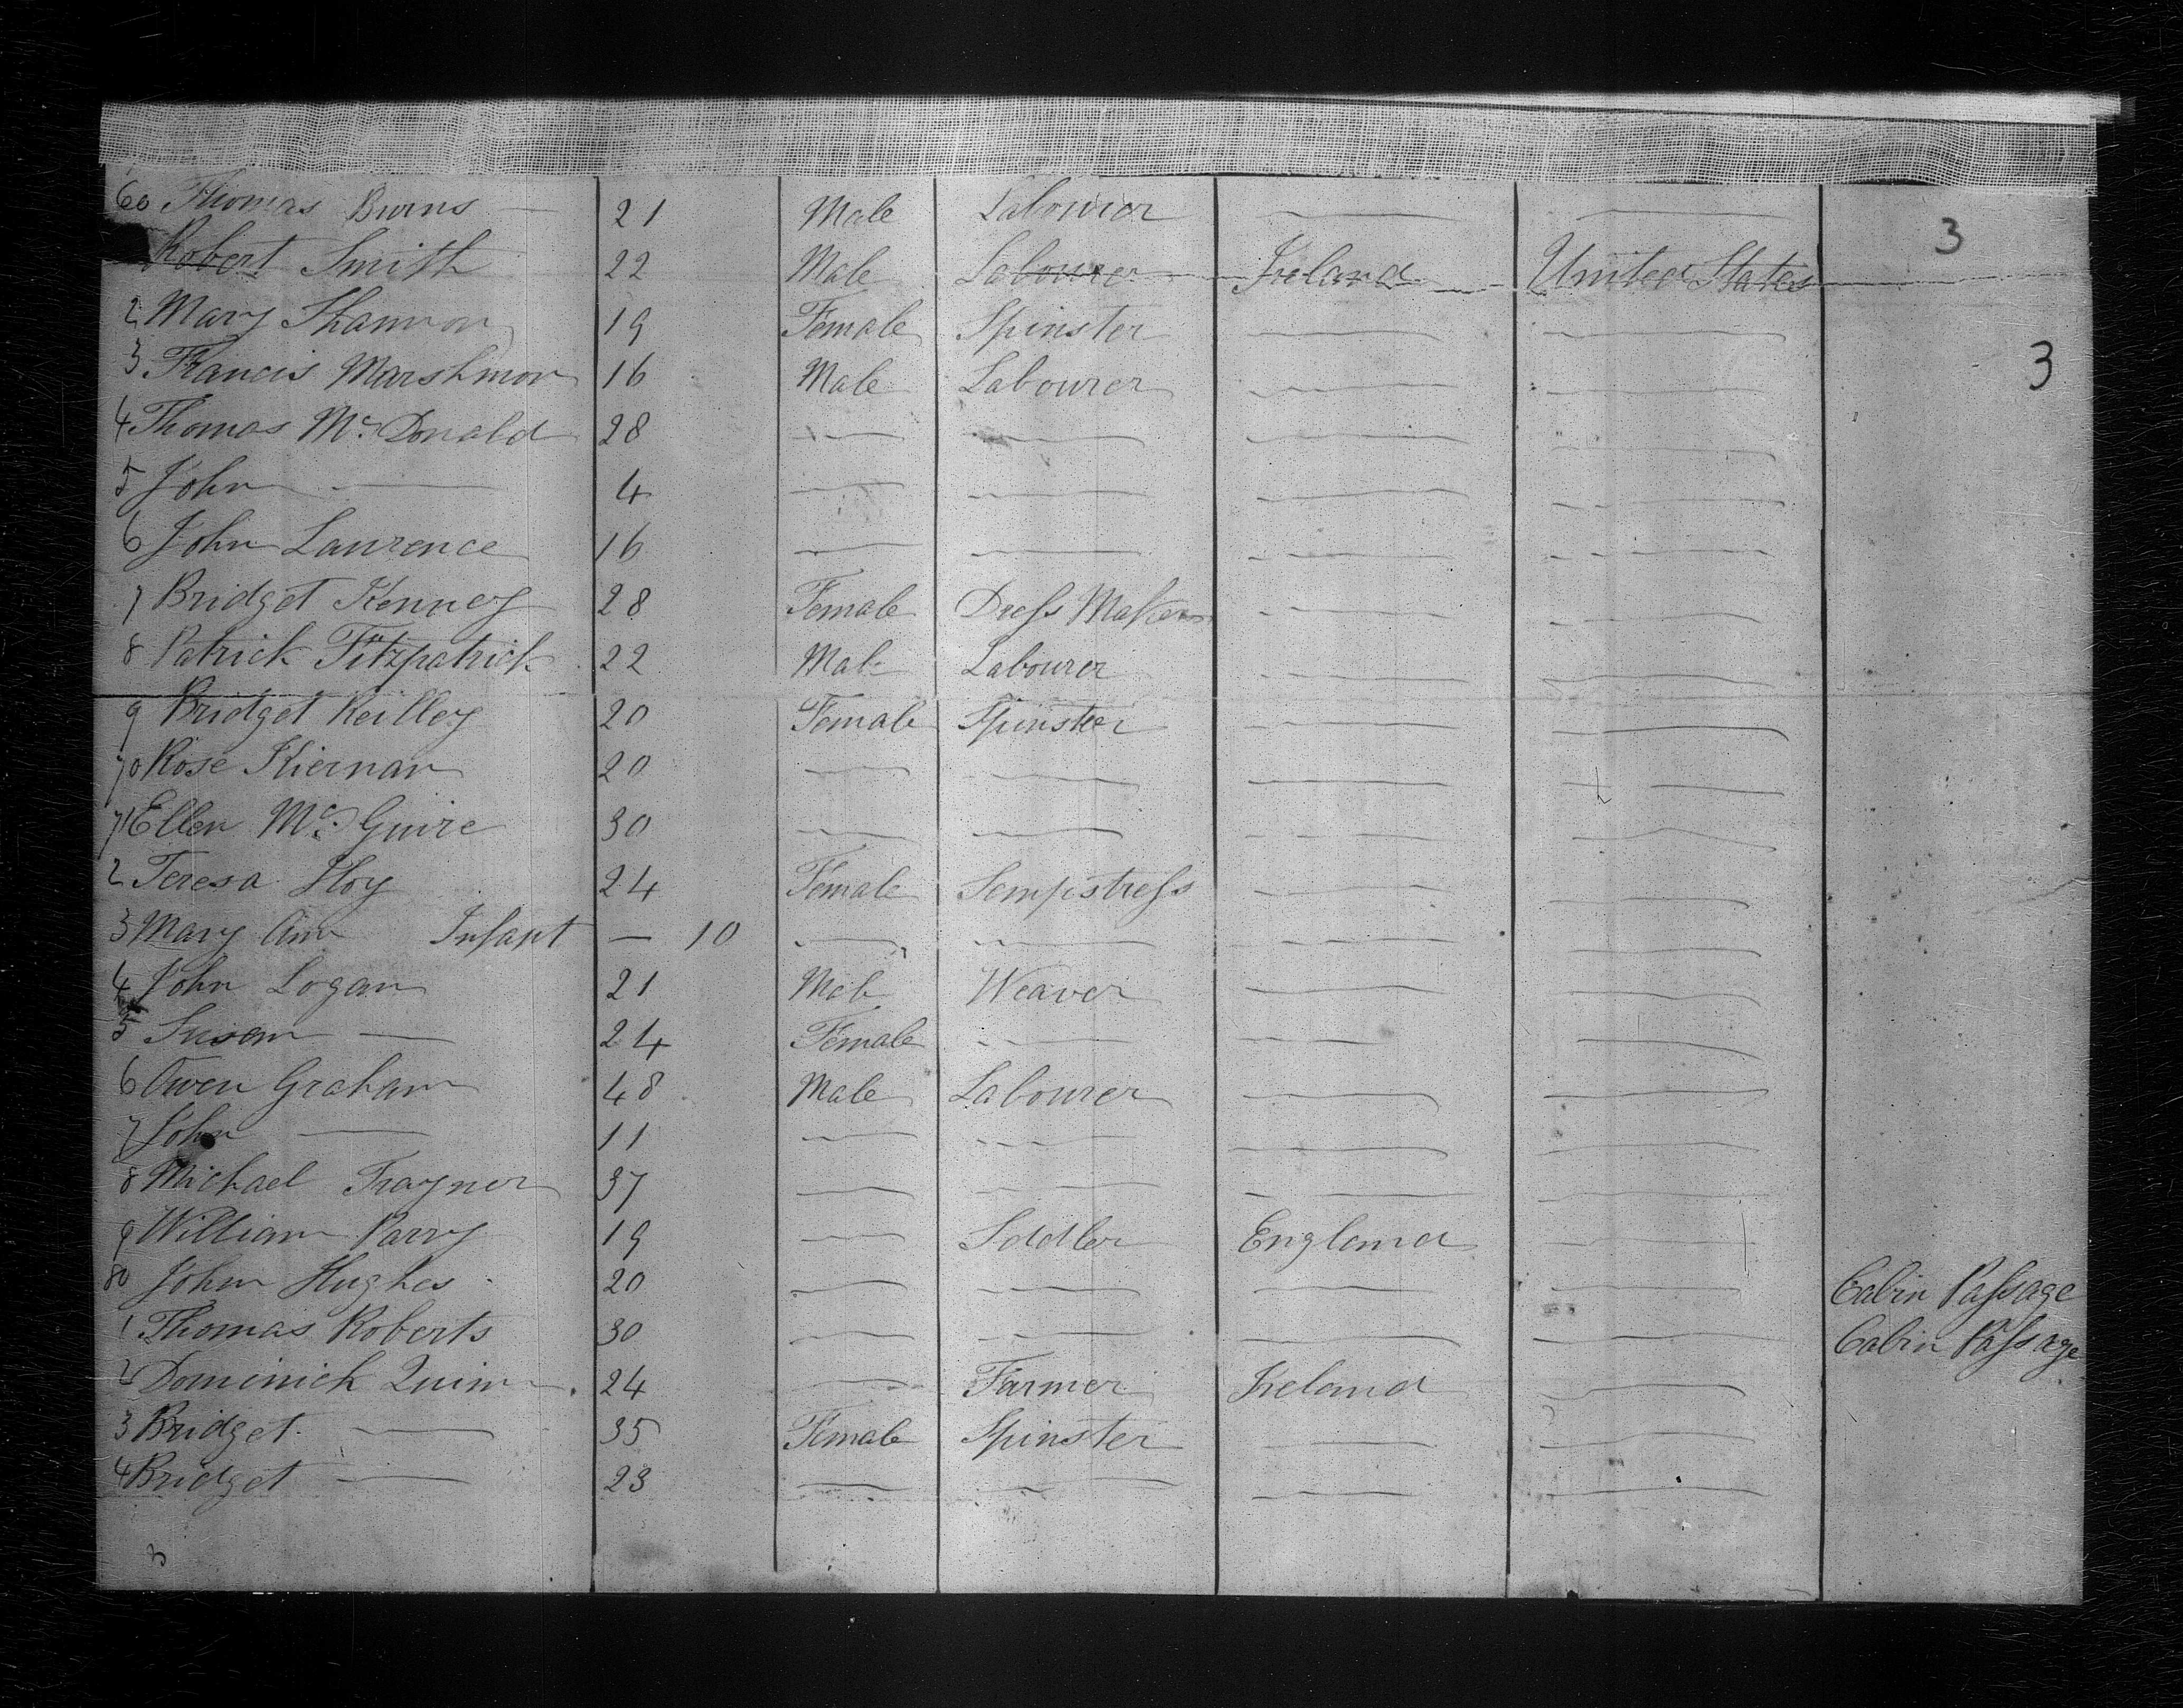 60 Thomas Burns — 21 Male Labourer — —
3
Robert Smith 22 Male Labourer Ireland United States
2 Mary Shannon 19 Female Spinster — —
3 Francis Marshmon 16 Male Labourer — —
3
4 Thomas Mc Donald 28 — — — —
5 John — 4 — — — —
6 John Laurence 16 — — — —
7 Bridget Kenney 28 Female Dress Maker — —
8 Patrick Fitzpatrick 22 Male Labourer — —
9 Bridget Reilley 20 Female Spinster — —
70 Rose Kiernan 20 — — — —
71 Ellen Mc Guire 30 — — — —
2 Teresa Hoy 24 Female Sempstress — —
3 Mary Ann Infant — 10 — — — —
4 John Logan 21 Male Weaver — —
5 Susan — 24 Female — — —
6 Owen Graham 48 Male Labourer — —
7 John — 11 — — — —
8 Michael Traynor 37 — — — —
9 William Parry 19 — Saddler England —
80 John Hughes 20 — — — — Cabin Passage
1 Thomas Roberts 30 — — — — Cabin Passage
2 Dominick Quinn 24 — Farmer Ireland —
3 Bridget — 35 Female Spinster — —
4 Bridget — 23 — — — —
3